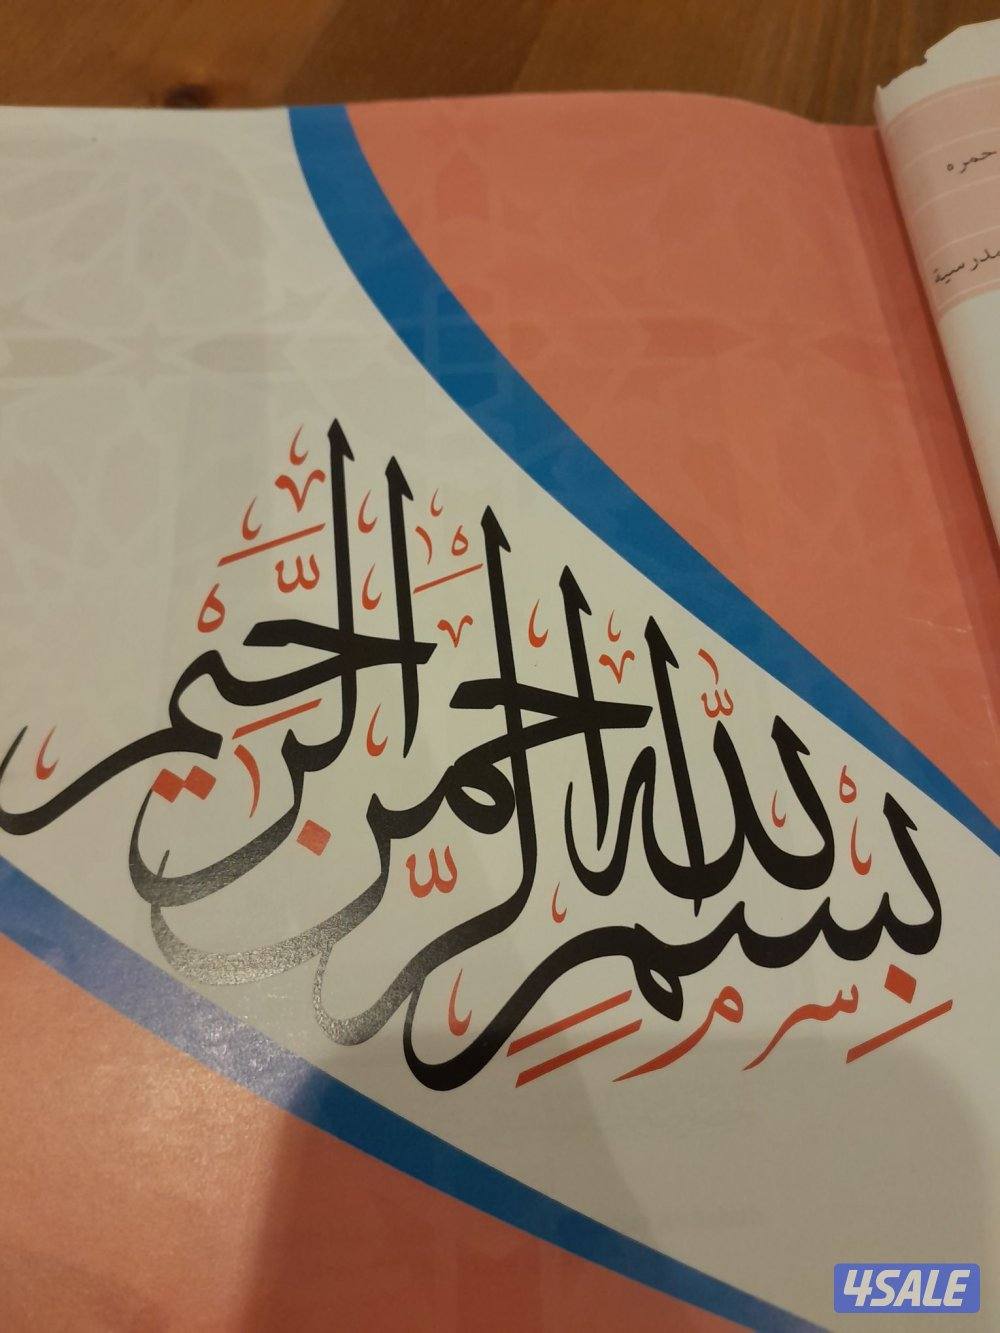 بِسْمِ اللَّهِ الرَّحْمَٰنِ الرَّحِيمِ
حمره
مدرسية
4SALE